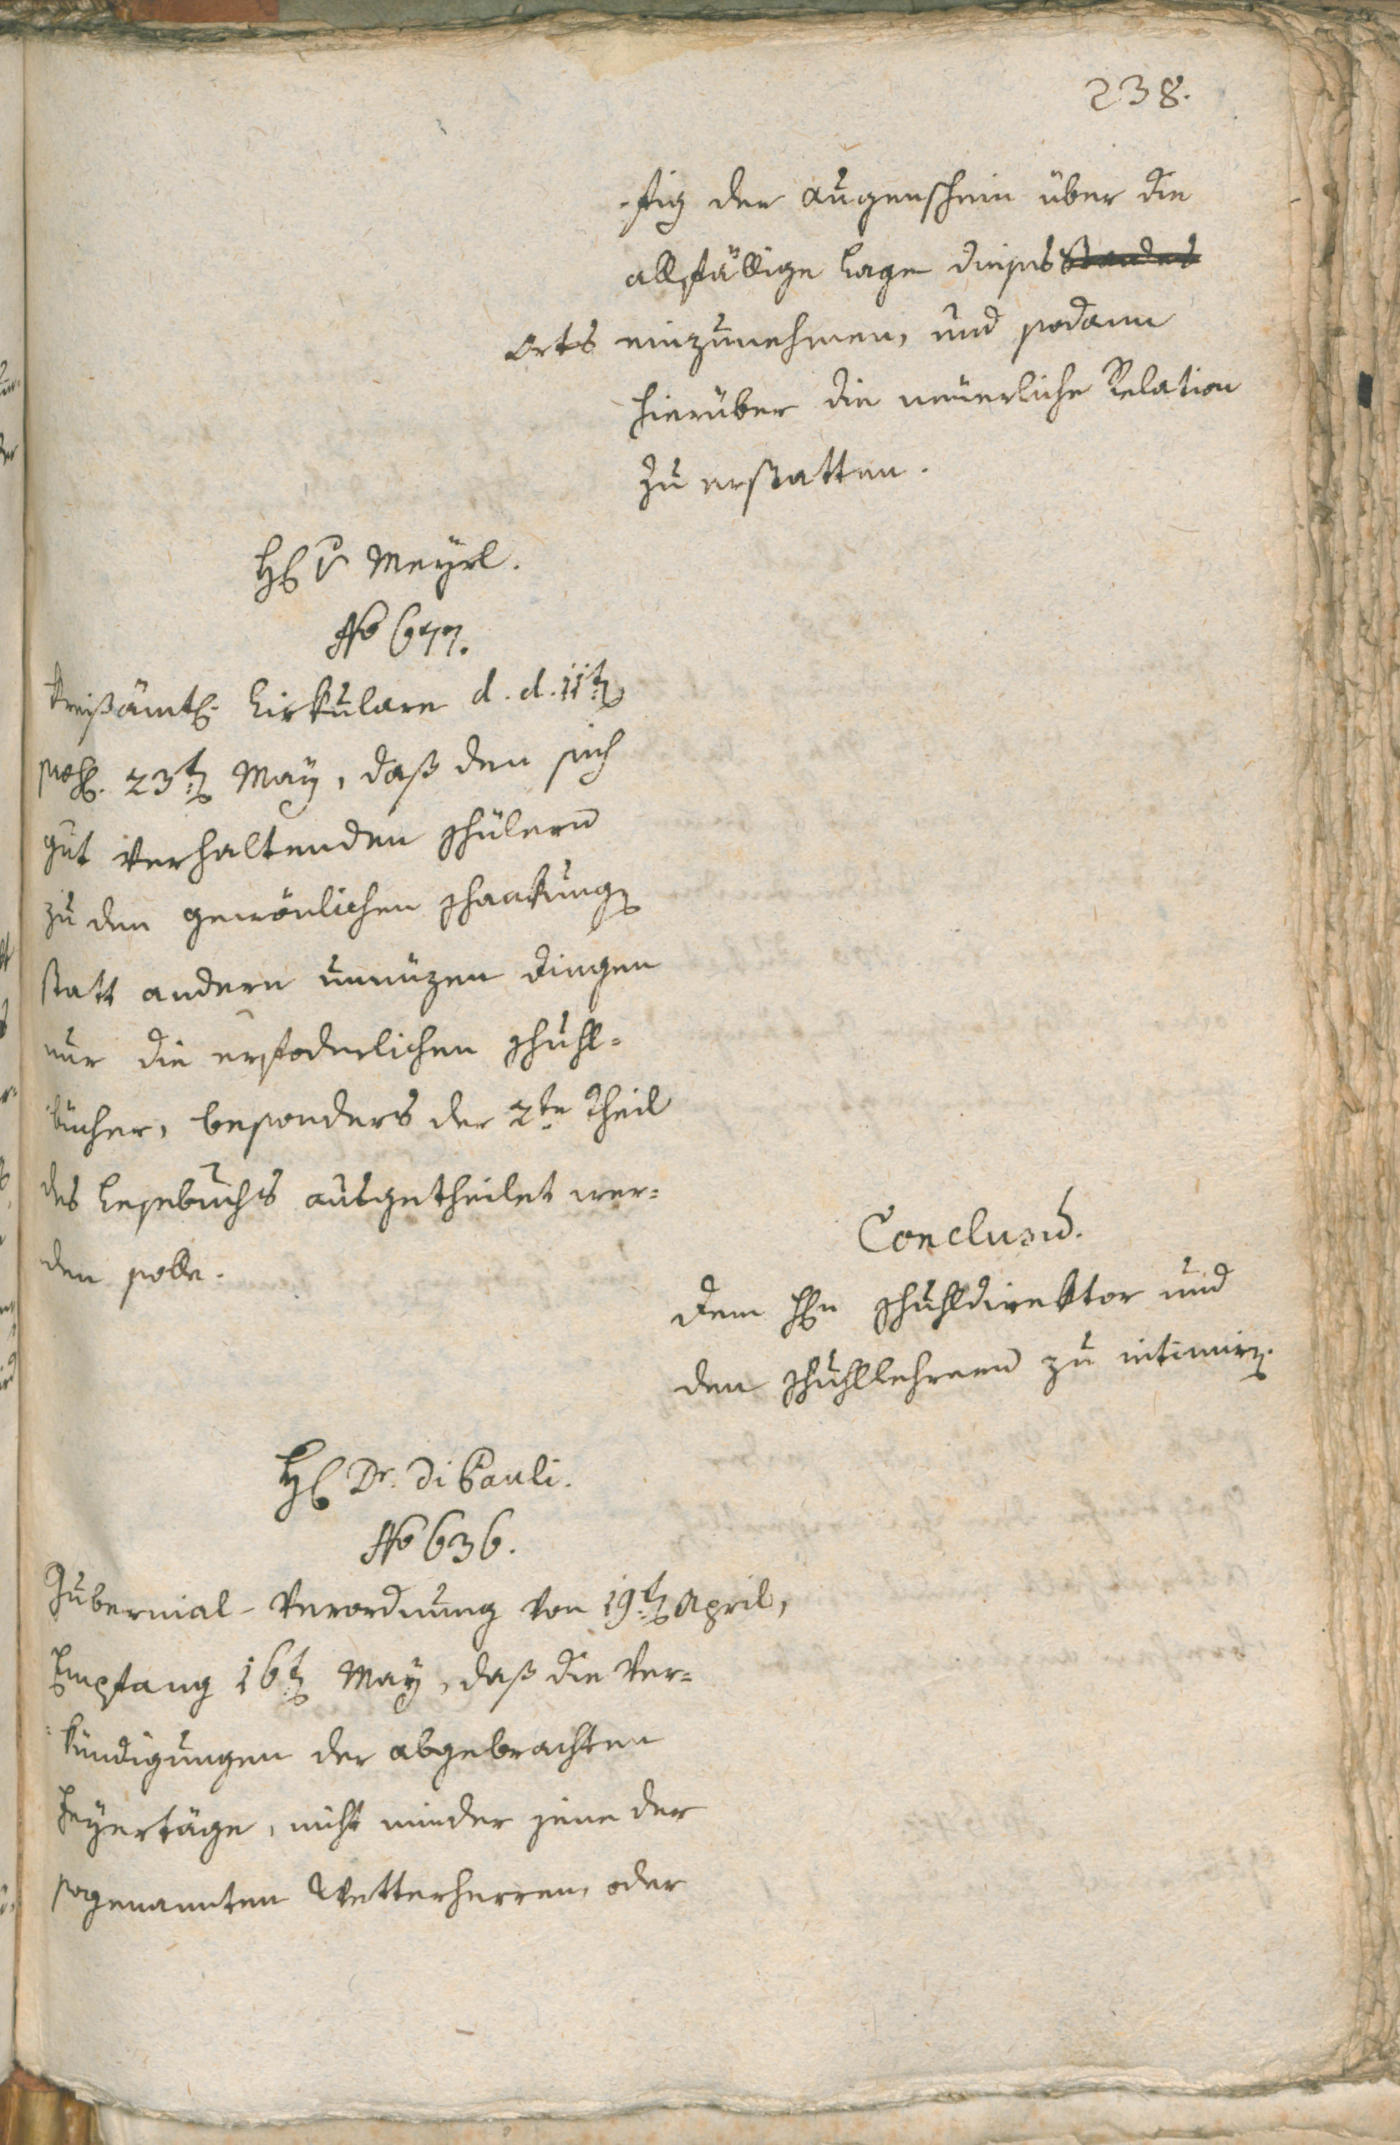 238.
-ftig der Augenschein über die
allfällige Lage dieses Standes
Orts einzunehmen, und sodann
hierüber die neüerliche Relation
zu erstatten.
H. v Meyrl.
No 677.
Kreißämtl. Cirkulare d. d. 11t.
pros. 23t. May, daß den sich
gut verhaltenden Schülern
zu den gewönlichen Schankung.
statt andern unnüzen Dingen
nur die erfoderlichen Schuhl=
bücher, besonders der 2te Theil
des Lesebuchs ausgetheilet wer=
den solle.
Conclusum.
Dem Hn Schuhldirektor und
den Schuhllehrern zu intimir.
H. Dr. Di Pauli.
No 636.
Gubernial-Verordnung von 19t. April,
Empfang 16t. May, daß die Ver=
=kündigungen der abgebrachten
Feyertäge, nicht minder jene der
sogenannten Wetterherren, oder